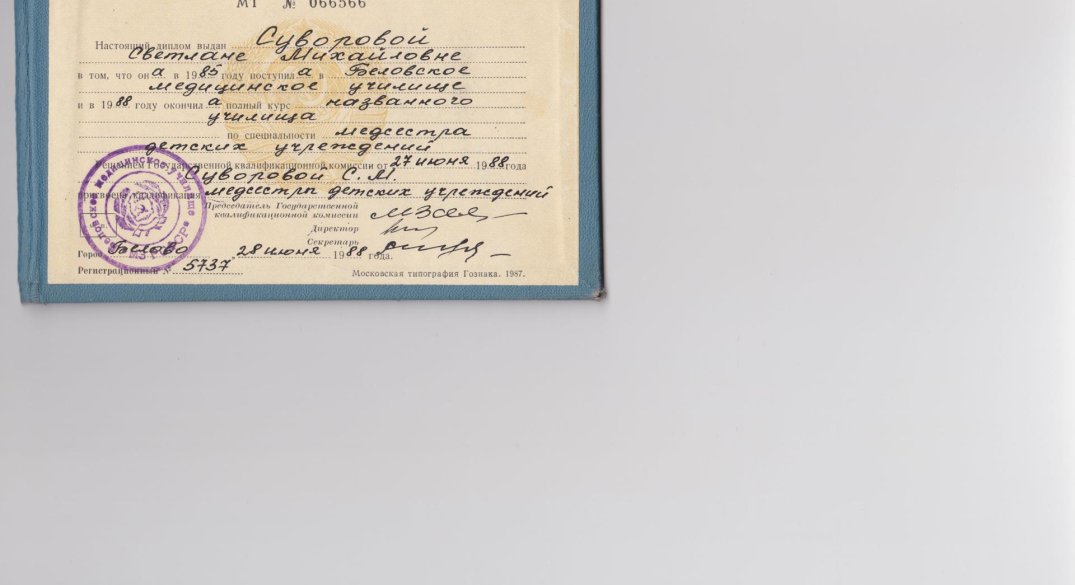 МТ № 066566
Настоящий диплом выдан Суворовой
Светлане Михайловне
в том, что она в 1985 году поступила в Беловское
медицинское училище
и в 1988 году окончила полный курс названного
училища
по специальности медсестра
детских учреждений
Решением Государственной квалификационной комиссии от 27 июня 1988 года
Суворовой С. М.
присвоена квалификация медсестры детских учреждений
Председатель Государственной
квалификационной комиссии
Директор
Секретарь
Город Белово 28 июня 1988 года.
Регистрационный № 5737
Московская типография Гознака. 1987.